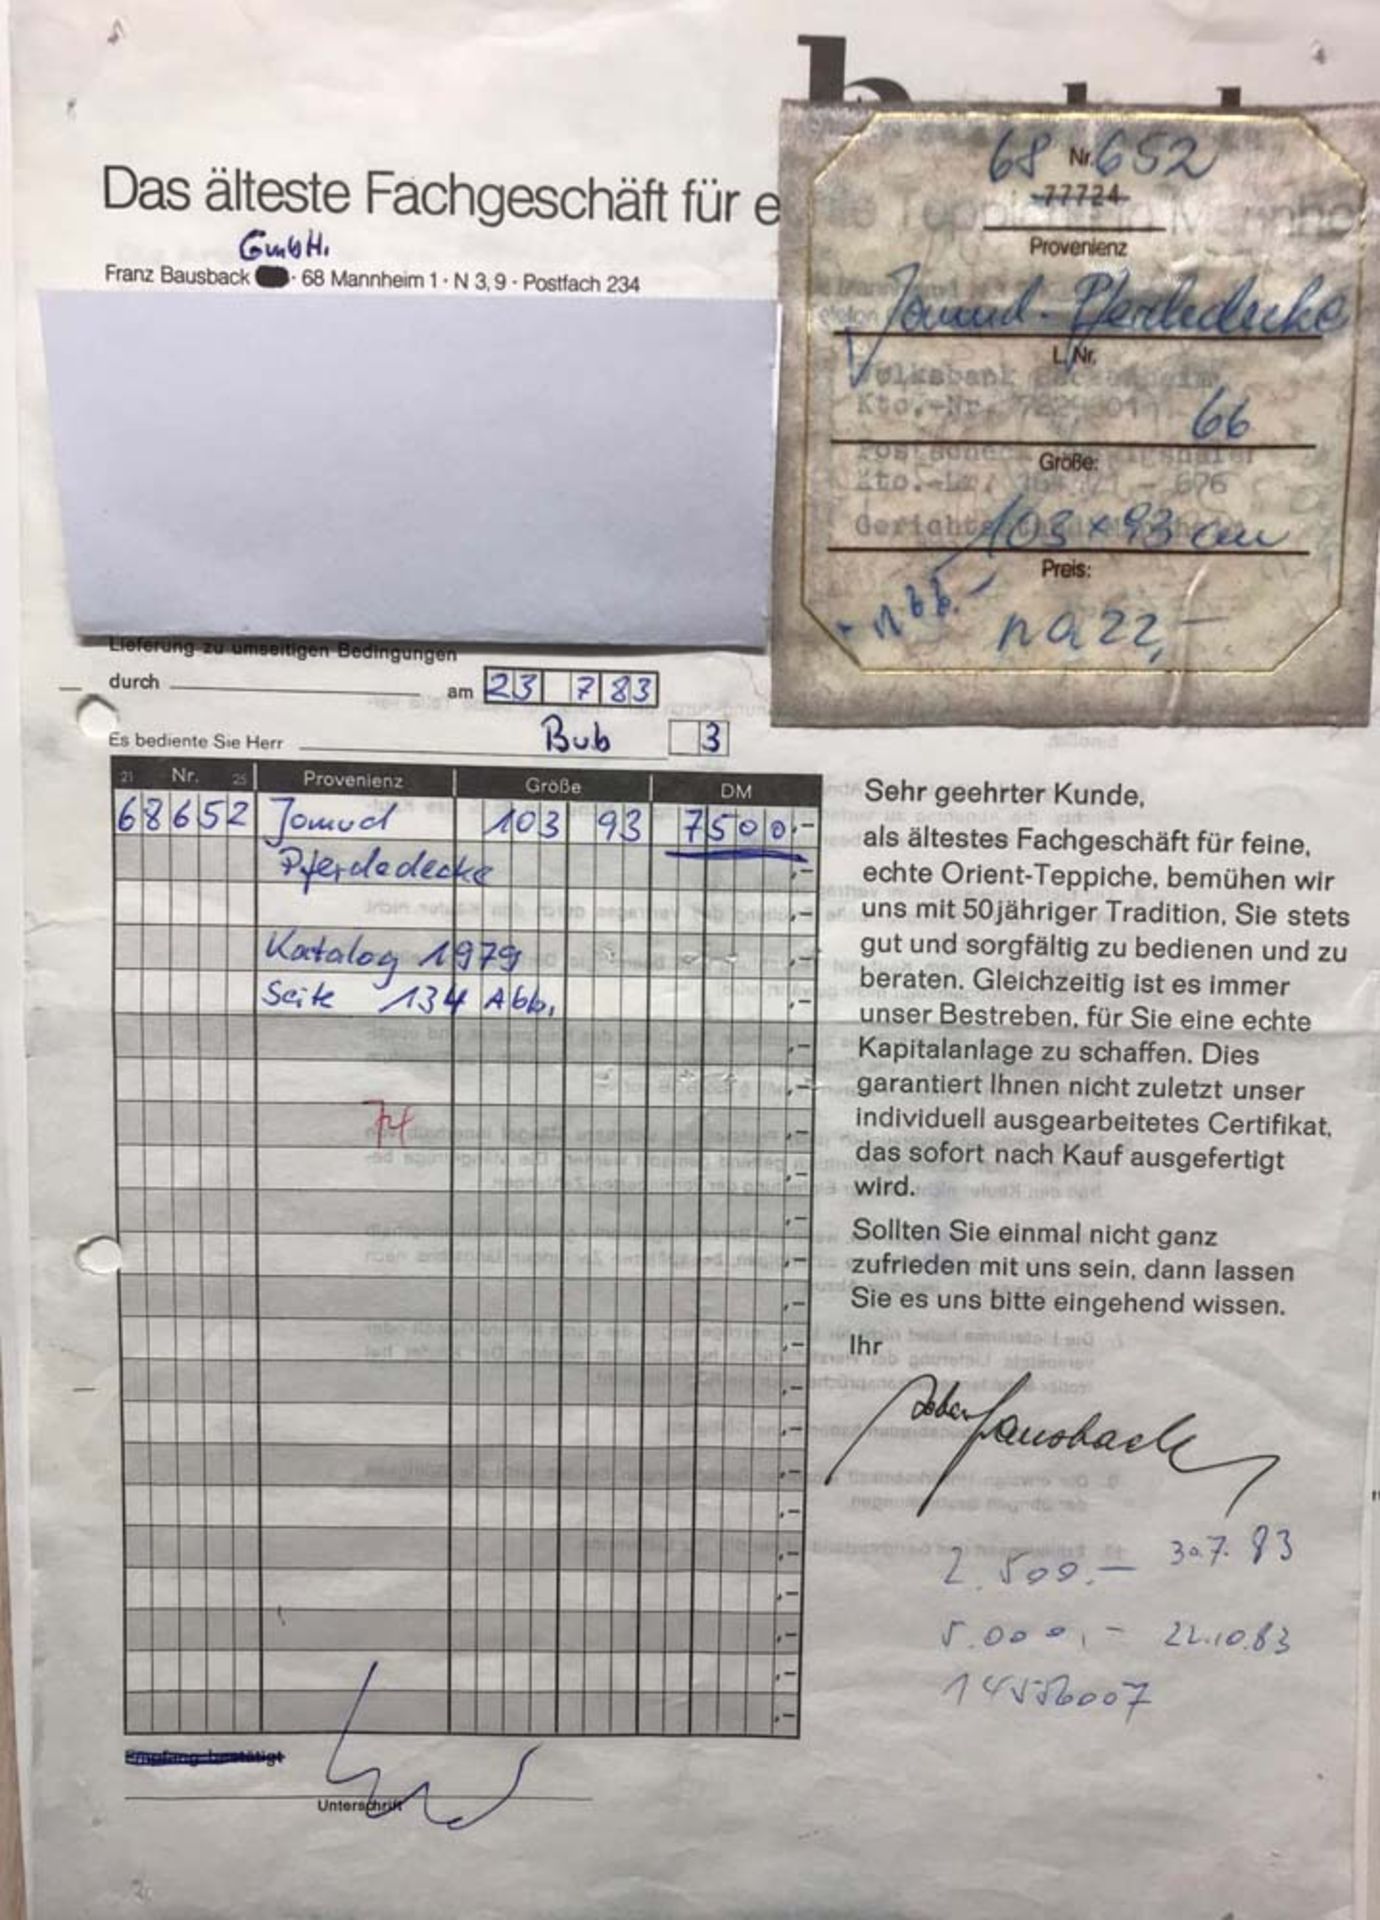 Das älteste Fachgeschäft für e
GmbH.
Franz Bausback · 68 Mannheim 1 · N 3, 9 · Postfach 234
68 Nr. 652
77724
Provenienz
Jomud-Pferdedecke
L. Nr.
66
Größe:
103 x 93 cm
Preis:
na 22,-
Volksbank
Kto.-Nr.
Lieferung zu umseitigen Bedingungen
durch am 23 7 83
Es bediente Sie Herr Bub 3
21 Nr. 25 Provenienz Größe DM
68652 Jomud 103 93 7500,-
Pferdedecke
Katalog 1979
Seite 134 Abb.
Sehr geehrter Kunde,
als ältestes Fachgeschäft für feine,
echte Orient-Teppiche, bemühen wir
uns mit 50jähriger Tradition, Sie stets
gut und sorgfältig zu bedienen und zu
beraten. Gleichzeitig ist es immer
unser Bestreben, für Sie eine echte
Kapitalanlage zu schaffen. Dies
garantiert Ihnen nicht zuletzt unser
individuell ausgearbeitetes Certifikat,
das sofort nach Kauf ausgefertigt
wird.
Sollten Sie einmal nicht ganz
zufrieden mit uns sein, dann lassen
Sie es uns bitte eingehend wissen.
Ihr
Bausback
2.500.- 30.7.83
5.000,- 22.10.83
Empfang bestätigt
Unterschrift